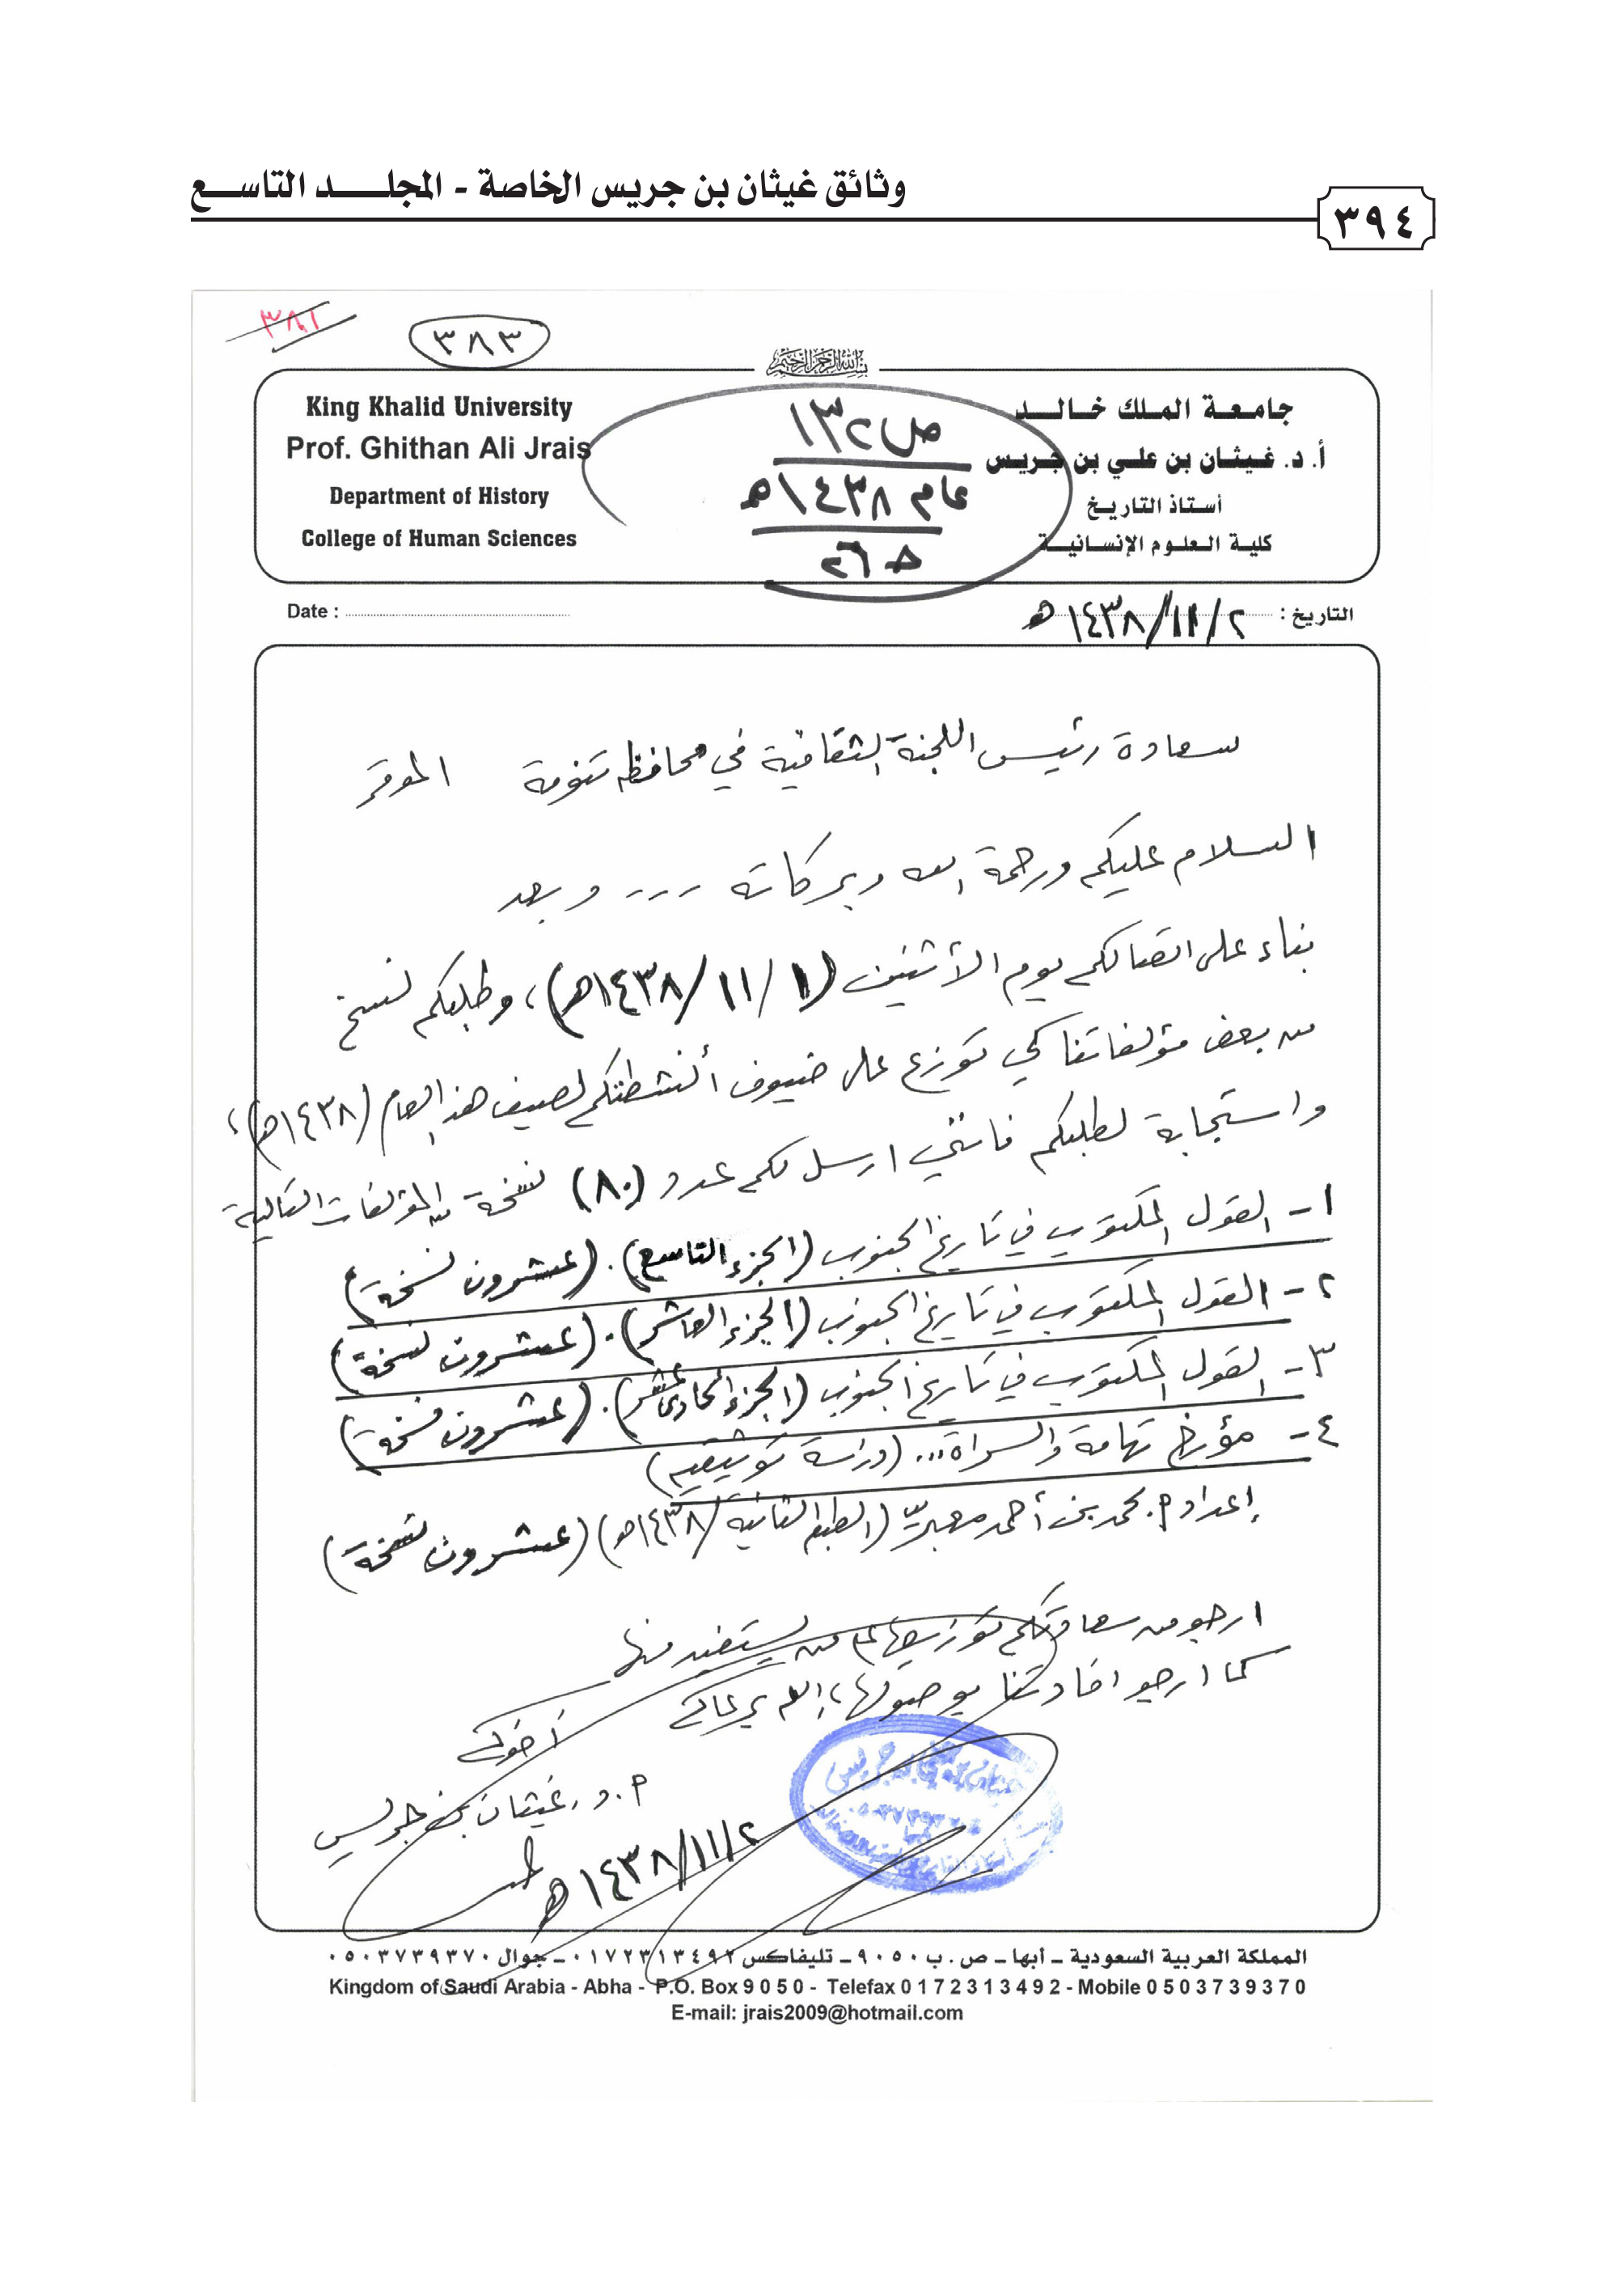 وثائق غيثان بن جريس الخاصة - المجلد التاسع
٣٩٤
٣٨١
٣٨٣
بسم الله الرحمن الرحيم
King Khalid University
Prof. Ghithan Ali Jrais
Department of History
College of Human Sciences
جامعة الملك خالد
أ. د. غيثان بن علي بن جريس
أستاذ التاريخ
كلية العلوم الإنسانية
ص ١٣٢
عام ١٤٣٨هـ
Date :
التاريخ : ٢/١١/١٤٣٨هـ
سعادة رئيس اللجنة الثقافية في محافظة تنومة الموقر
السلام عليكم ورحمة الله وبركاته ... وبعد
بناء على اتصالكم يوم الأثنين (١/١١/١٤٣٨هـ)، وطلبكم نسخ
من بعض مؤلفاتنا كي توزع على ضيوف أنشطتكم لصيف هذا العام (١٤٣٨هـ)،
واستجابة لطلبكم فانني ارسل لكم عدد (٨٠) نسخة من المؤلفات التالية
١- القول المكتوب في تاريخ الجنوب (الجزء التاسع). (عشرون نسخة)
٢- القول المكتوب في تاريخ الجنوب (الجزء العاشر). (عشرون نسخة)
٣- القول المكتوب في تاريخ الجنوب (الجزء الحادي عشر). (عشرون نسخة)
٤- مؤرخ تهامة والسراة... (دراسة توثيقية)
إعداد م. محمد بن أحمد معبر (الطبعة الثانية/١٤٣٨هـ) (عشرون نسخة)
ارجو من سعادتكم توزيعها على من يستفيد منها
كما ارجو افادتنا بوصولها، والله يرعاكم
أخوكم
أ.د. غيثان بن جريس
٢/١١/١٤٣٨هـ
المملكة العربية السعودية ـ أبها ـ ص . ب ٩٠٥٠ ـ تليفاكس ٠١٧٢٣١٣٤٩٢ ـ جوال ٠٥٠٣٧٣٩٣٧٠
Kingdom of Saudi Arabia - Abha - P.O. Box 9 0 5 0 - Telefax 0 1 7 2 3 1 3 4 9 2 - Mobile 0 5 0 3 7 3 9 3 7 0
E-mail: jrais2009@hotmail.com